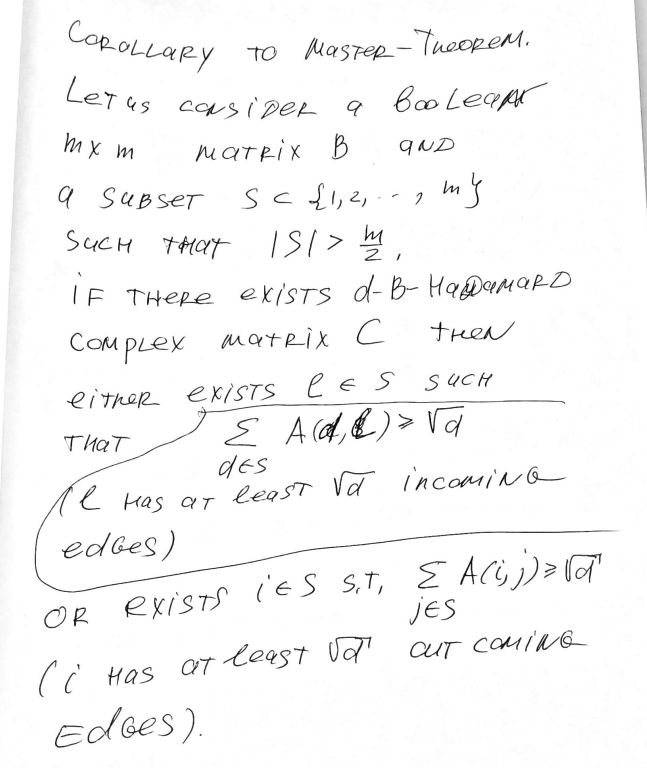 Corollary to Master-Theorem.
Let us consider a Boolean
m x m matrix B and
a subset S ⊂ {1, 2, .., m}
such that |S| > m/2,
if there exists d-B-Hadamard
complex matrix C then
either exists l ∈ S such
that Σ_{d∈S} A(d, l) ≥ √d
(l has at least √d incoming
edges)
or exists i ∈ S s.t. Σ_{j∈S} A(i, j) ≥ √d
(i has at least √d out coming
edges).